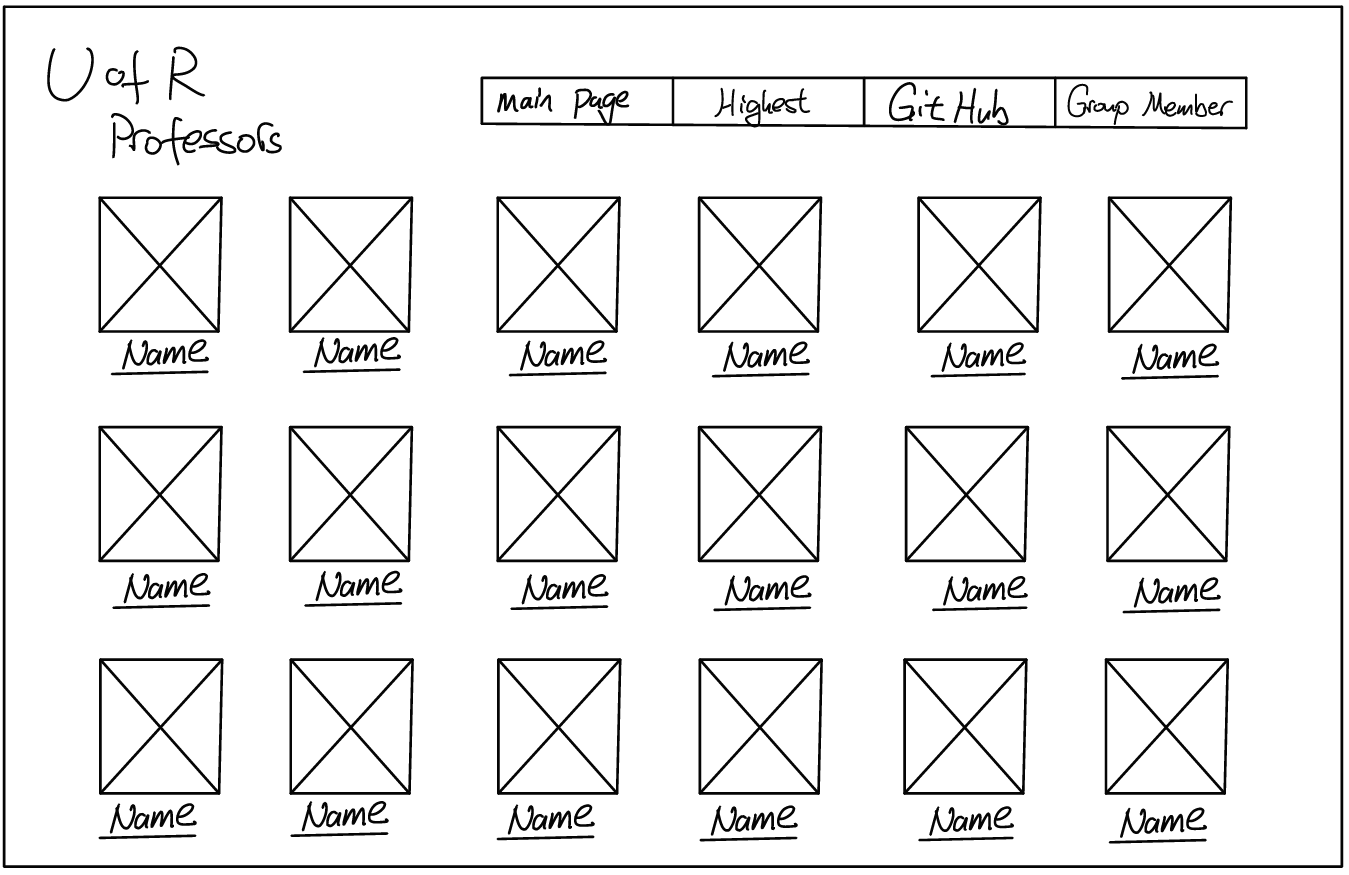 U of R
Professors
Main Page Highest GitHub Group Member
Name Name Name Name Name Name
Name Name Name Name Name Name
Name Name Name Name Name Name